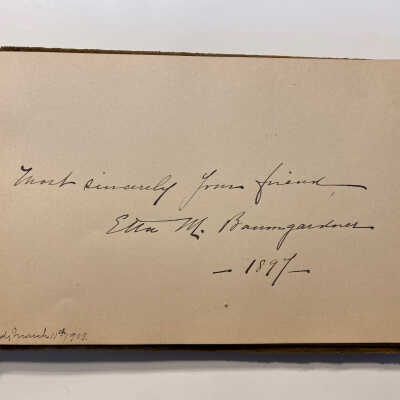 Most sincerely Your friend,
Etta M. Baumgardner
– 1897 –
March 11th 1903.